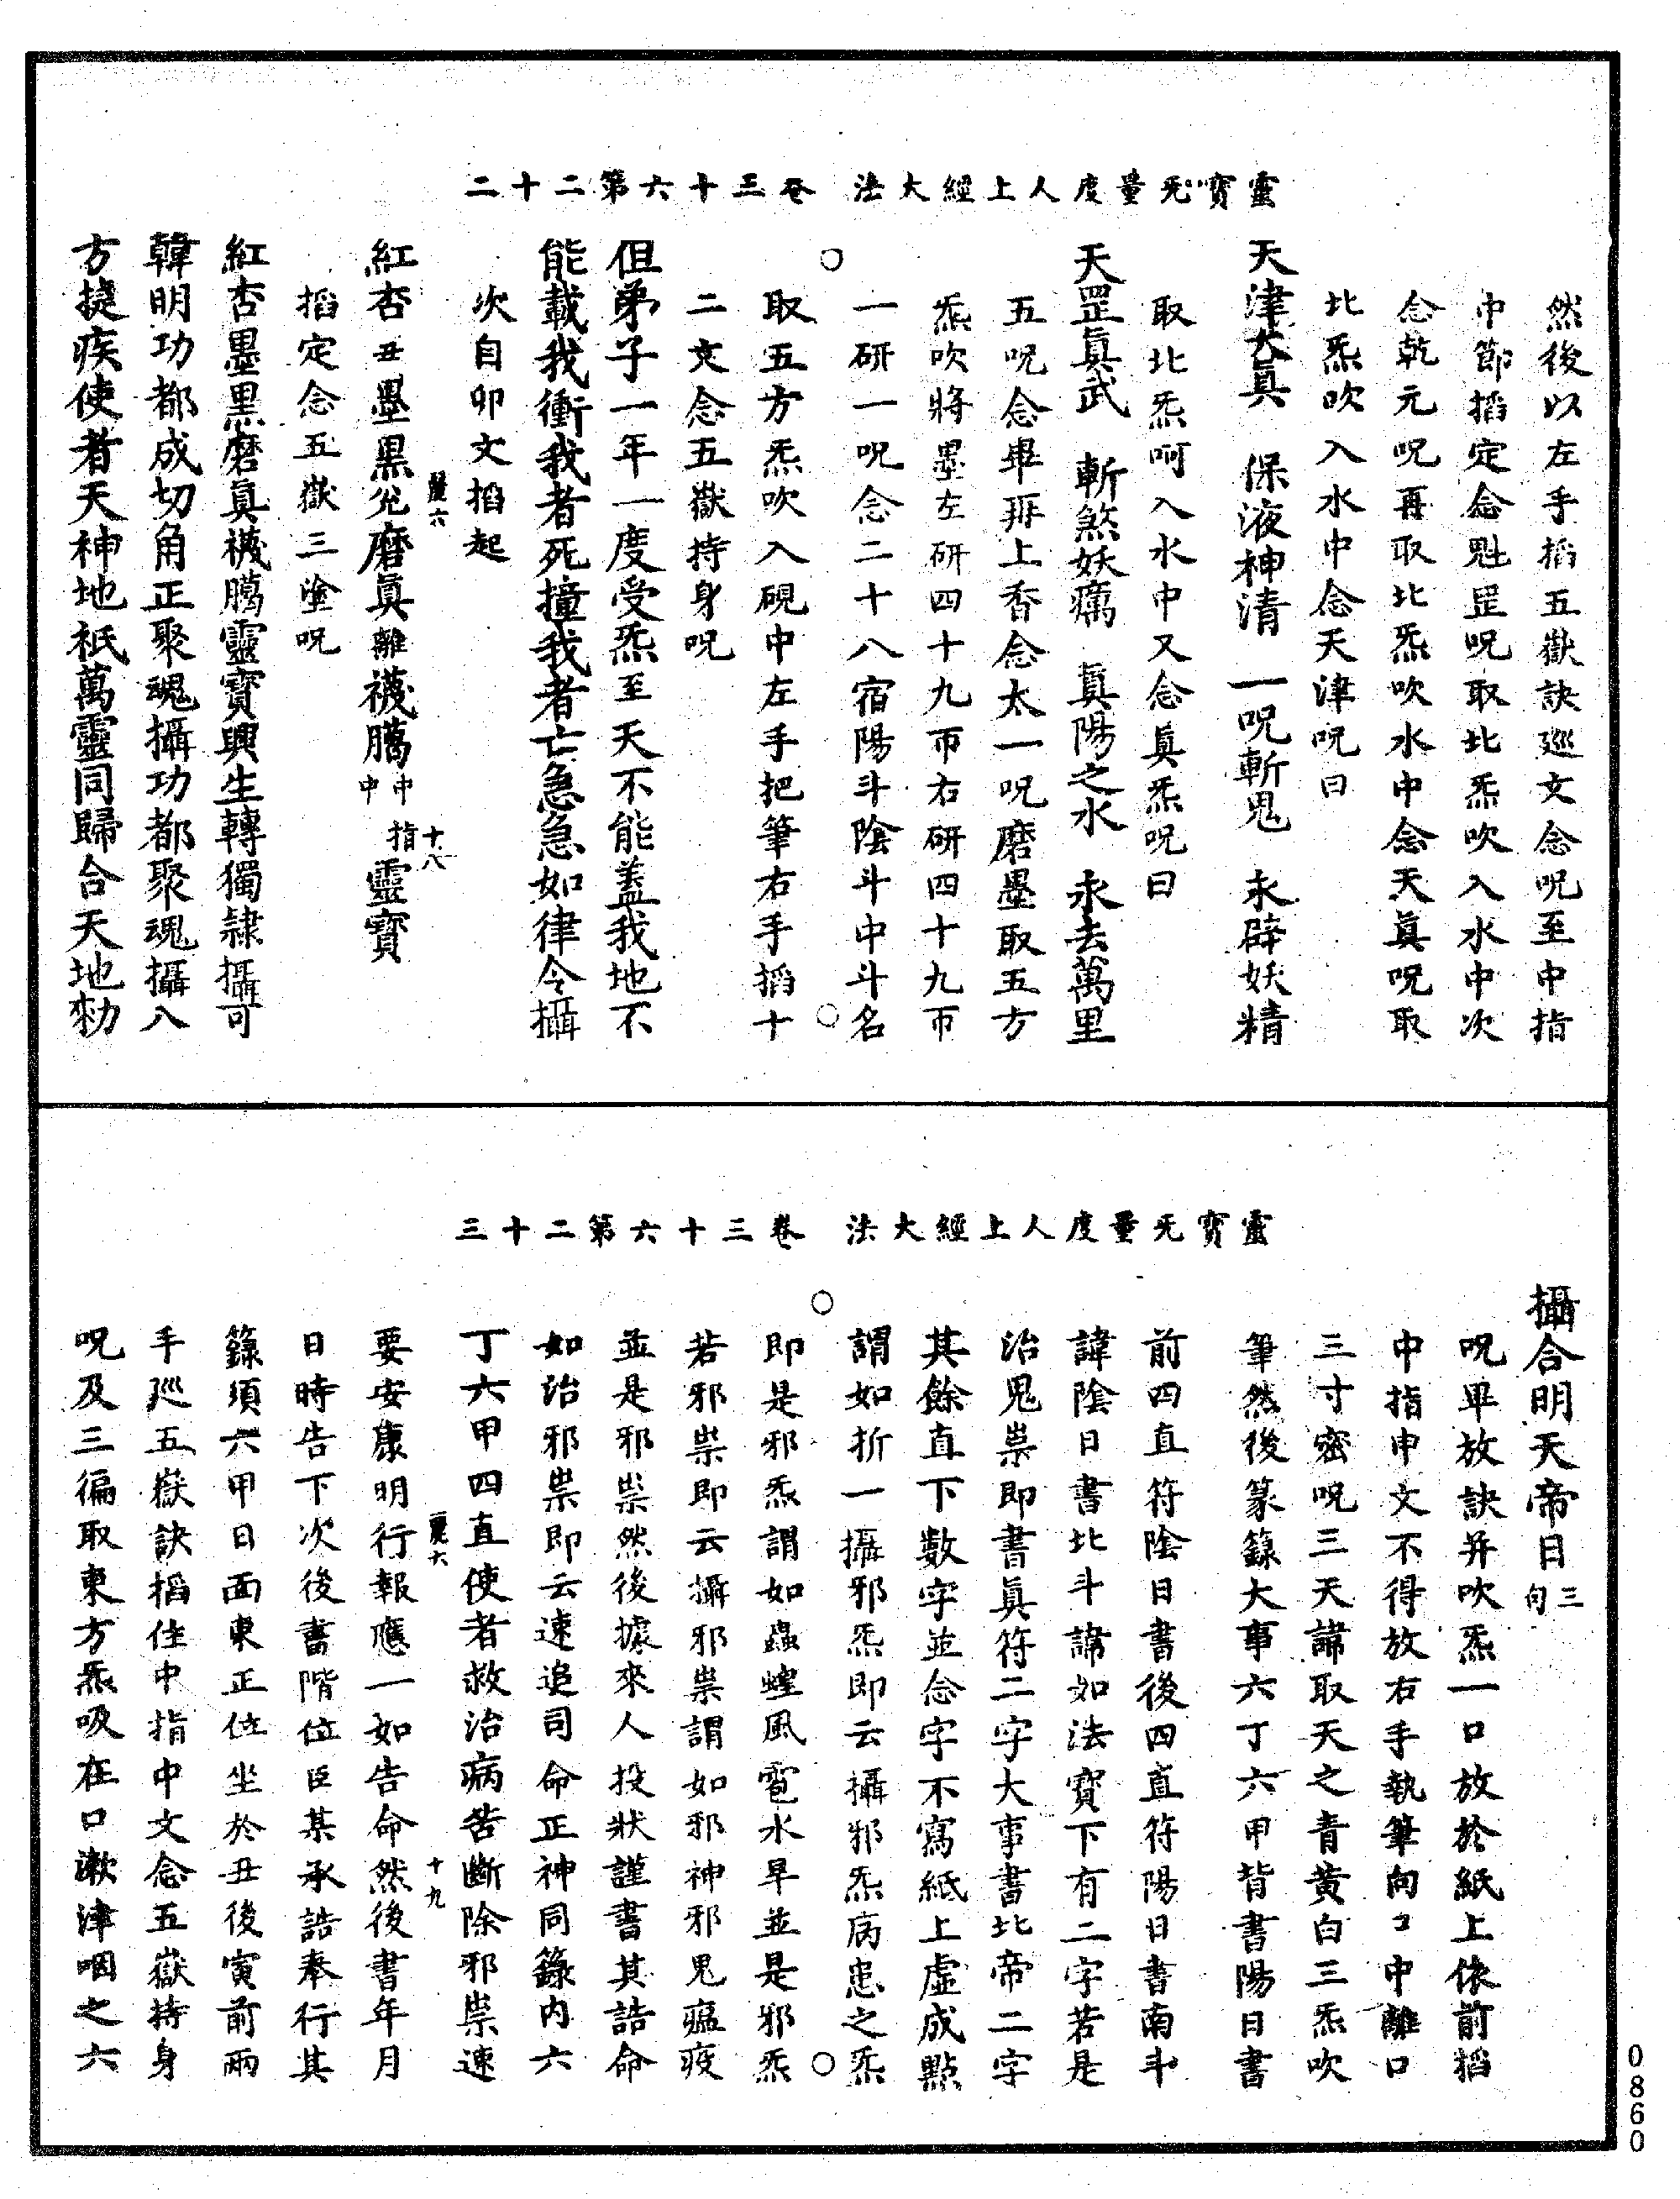 靈寶无量度人上經大法　卷三十六第二十二
然後以左手搯五嶽訣巡文念呪至中指
中節搯定念魁罡呪取北炁吹入水中次
念乾元呪再取北炁吹水中念天真呪取
北炁吹入水中念天津呪曰
天津太真　保液神清　一呪斬鬼　永辟妖精
取北炁呵入水中又念真炁呪曰
天罡真武　斬煞妖癘　真陽之水　永去萬里
五呪念畢再上香念太一呪磨墨取五方
炁吹將墨左研四十九帀右研四十九帀
一研一呪念二十八宿陽斗陰斗中斗名
取五方炁吹入硯中左手把筆右手搯十
二文念五嶽持身呪
但弟子一年一度受炁至天不能蓋我地不
能載我衝我者死撞我者亡急急如律令攝
次自卯文搯起
紅杏丑墨黑兊磨真離襪臈中申指靈寶
搯定念五嶽三塗呪
紅杏墨黑磨真襪臈靈寶興生轉獨隷攝可
韓明功都成切角正聚魂攝功都聚魂攝八
方捷疾使者天神地祇萬靈同歸合天地勑
靈寶无量度人上經大法　卷三十六第二十三
攝合明天帝日三句
呪畢放訣并吹炁一口放於紙上依前搯
中指申文不得放右手執筆向口中離口
三寸密呪三天諱取天之青黃白三炁吹
筆然後篆籙大事六丁六甲皆書陽日書
前四直符陰日書後四直符陽日書南斗
諱陰日書北斗諱如法寶下有二字若是
治鬼祟即書真符二字大事書北帝二字
其餘直下數字並念字不寫紙上虛成點
謂如折一攝邪炁即云攝邪炁病患之炁
即是邪炁謂如蟲蝗風雹水旱並是邪炁
若邪祟即云攝邪祟謂如邪神邪鬼瘟疫
並是邪祟然後據來人投狀謹書其誥命
如治邪祟即云速追司命正神同籙內六
丁六甲四直使者救治病苦斷除邪祟速
要安康明行報應一如告命然後書年月
日時告下次後書階位臣某承誥奉行其
籙須六甲日面東正位坐於丑後寅前兩
手巡五嶽訣搯住中指中文念五嶽持身
呪及三徧取東方炁吸在口漱津咽之六
十八
十九
0860